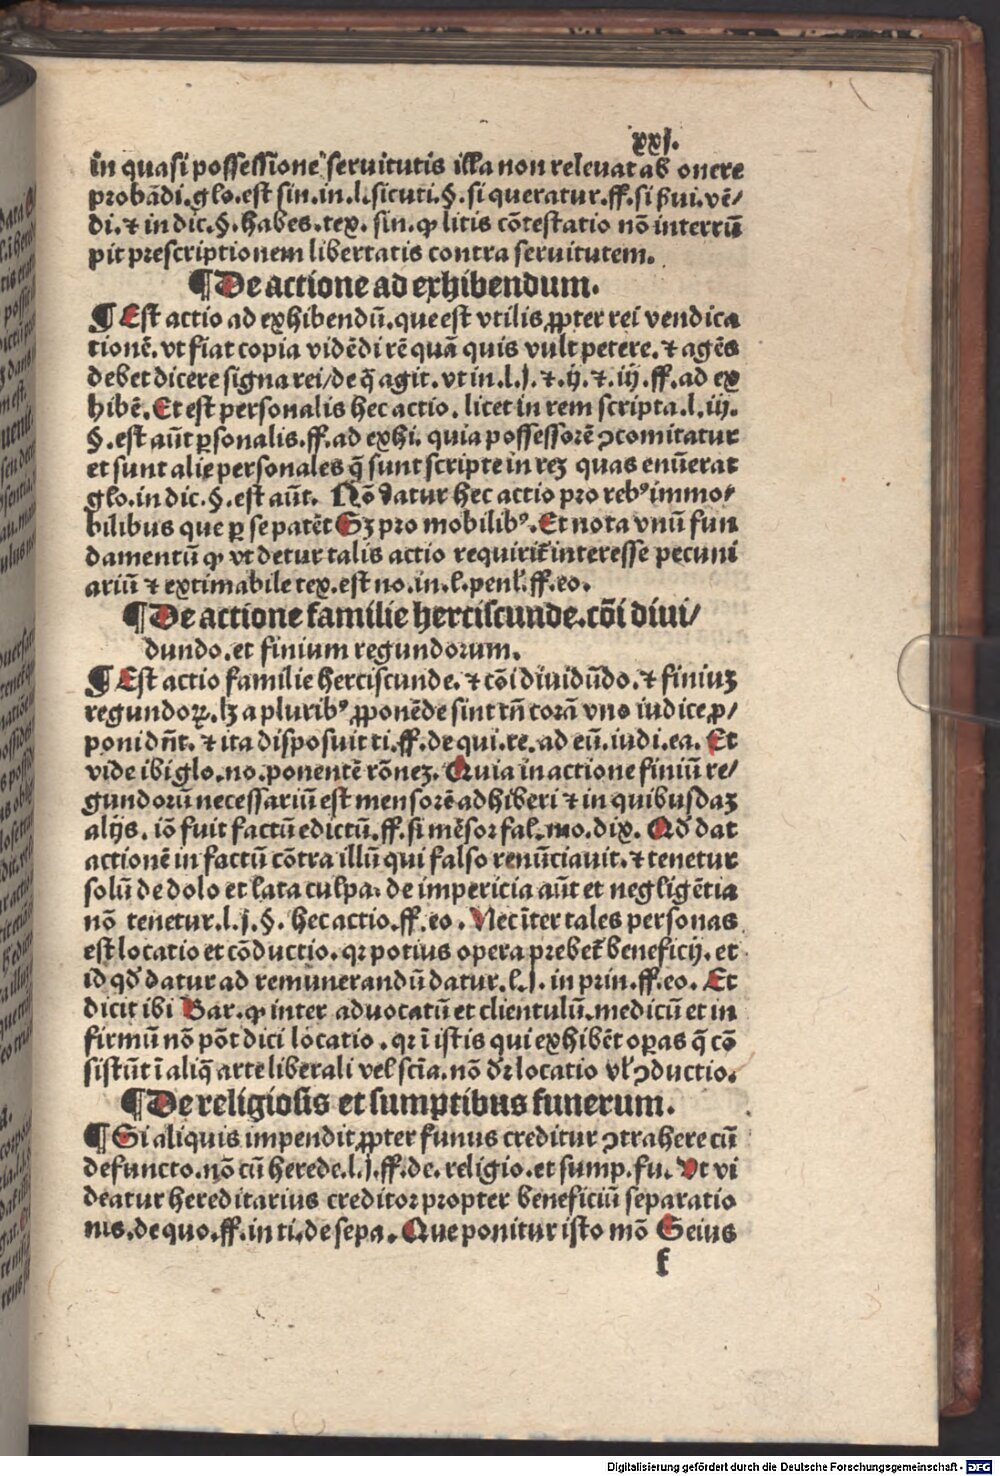 xxj.
in quasi possessione seruitutis illa non releuat ab onere
probãdi.glo.est sin.in.l.sicuti.§.si queratur.ff.si ẞui.vẽ/
di.⁊ in dic.§.habes.tex. sin.ꝙ litis cõtestatio nõ interrũ
pit prescriptionem libertatis contra seruitutem.
¶De actione ad exhibendum.
¶Est actio ad exhibendũ.que est vtilis ꝓpter rei vendica
tionẽ.vt fiat copia vidẽdi rẽ quã quis vult petere.⁊ agẽs
debet dicere signa rei/de q̃ agit.vt in.l.j.⁊.ij.⁊.iij.ff.ad ex
hibẽ.Et est personalis hec actio.licet in rem scripta.l.iij.
§.est aũt ꝑsonalis.ff.ad exhi.quia possessorẽ ꝯcomitatur
et sunt alie personales q̃ sunt scripte in reꝫ quas enũerat
glo.in dic.§.est aũt. Nõ datur hec actio pro rebꝰ immo/
bilibus que ꝑ se patẽt Sꝫ pro mobilibꝰ.Et nota vnũ fun
damentũ ꝙ vt detur talis actio requirit᷑ interesse pecuni
ariũ ⁊ extimabile tex.est no.in.l.penl̕.ff.eo.
¶De actione familie herciscunde.cõi diui/
dundo.et finium regundorum.
¶Est actio familie herciscunde.⁊ cõi diuidũdo.⁊ finiuꝫ
regundoꝝ.lꝫ a pluribꝰ ꝓponẽde sint tñ corã vno iudice ꝓ/
poni dñt.⁊ ita disposuit ti.ff.de qui.re.ad eũ.iudi.ea. Et
vide ibi glo.no.ponentẽ rõneꝫ. Quia in actione finiũ re/
gundorũ necessariũ est mensorẽ adhiberi ⁊ in quibusdaꝫ
alijs.iõ fuit factũ edictũ.ff.si mẽsor fal.mo.dix. Qd̕ dat
actionẽ in factũ cõtra illũ qui falso renũciauit.⁊ tenetur
solũ de dolo et lata culpa.de impericia aũt et negligẽtia
nõ tenetur.l.j.§.hec actio.ff.eo.Nec ĩter tales personas
est locatio et cõductio.qꝛ potius opera prebet᷑ beneficij.et
id qd̕ datur ad remunerandũ datur.l.j.in prin.ff.eo. Et
dicit ibi Bar.ꝙ inter aduocatũ et clientulũ.medicũ et in
firmũ nõ põt dici locatio.qꝛ ĩ istis qui exhibẽt oꝑas q̃ cõ
sistũt ĩ aliq̃ arte liberali vel scĩa.nõ dꝛ locatio vl̕ ꝯductio.
¶De religiosis et sumptibus funerum.
¶Si aliquis impendit ꝓpter funus creditur ꝯtrahere cũ
defuncto.nõ cũ herede.l.j.ff.de.religio.et sump.fu. Vt vi
deatur hereditarius creditor propter beneficiũ separatio
nis.de quo.ff.in ti.de sepa. Que ponitur isto mõ Seius
f
Digitalisierung gefördert durch die Deutsche Forschungsgemeinschaft - DFG